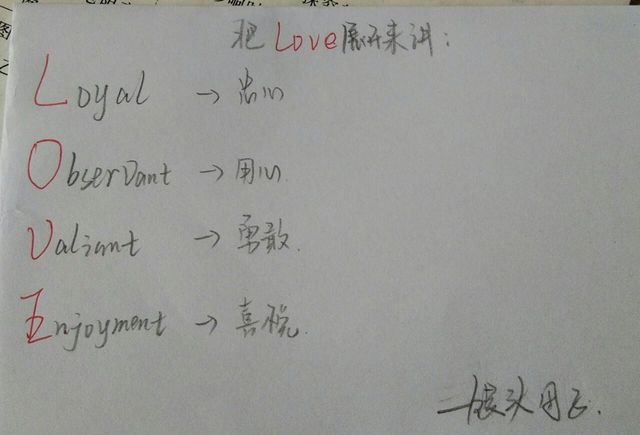 把Love展开来讲：
Loyal → 忠心
Observant → 用心
Valiant → 勇敢.
Enjoyment → 喜悦.